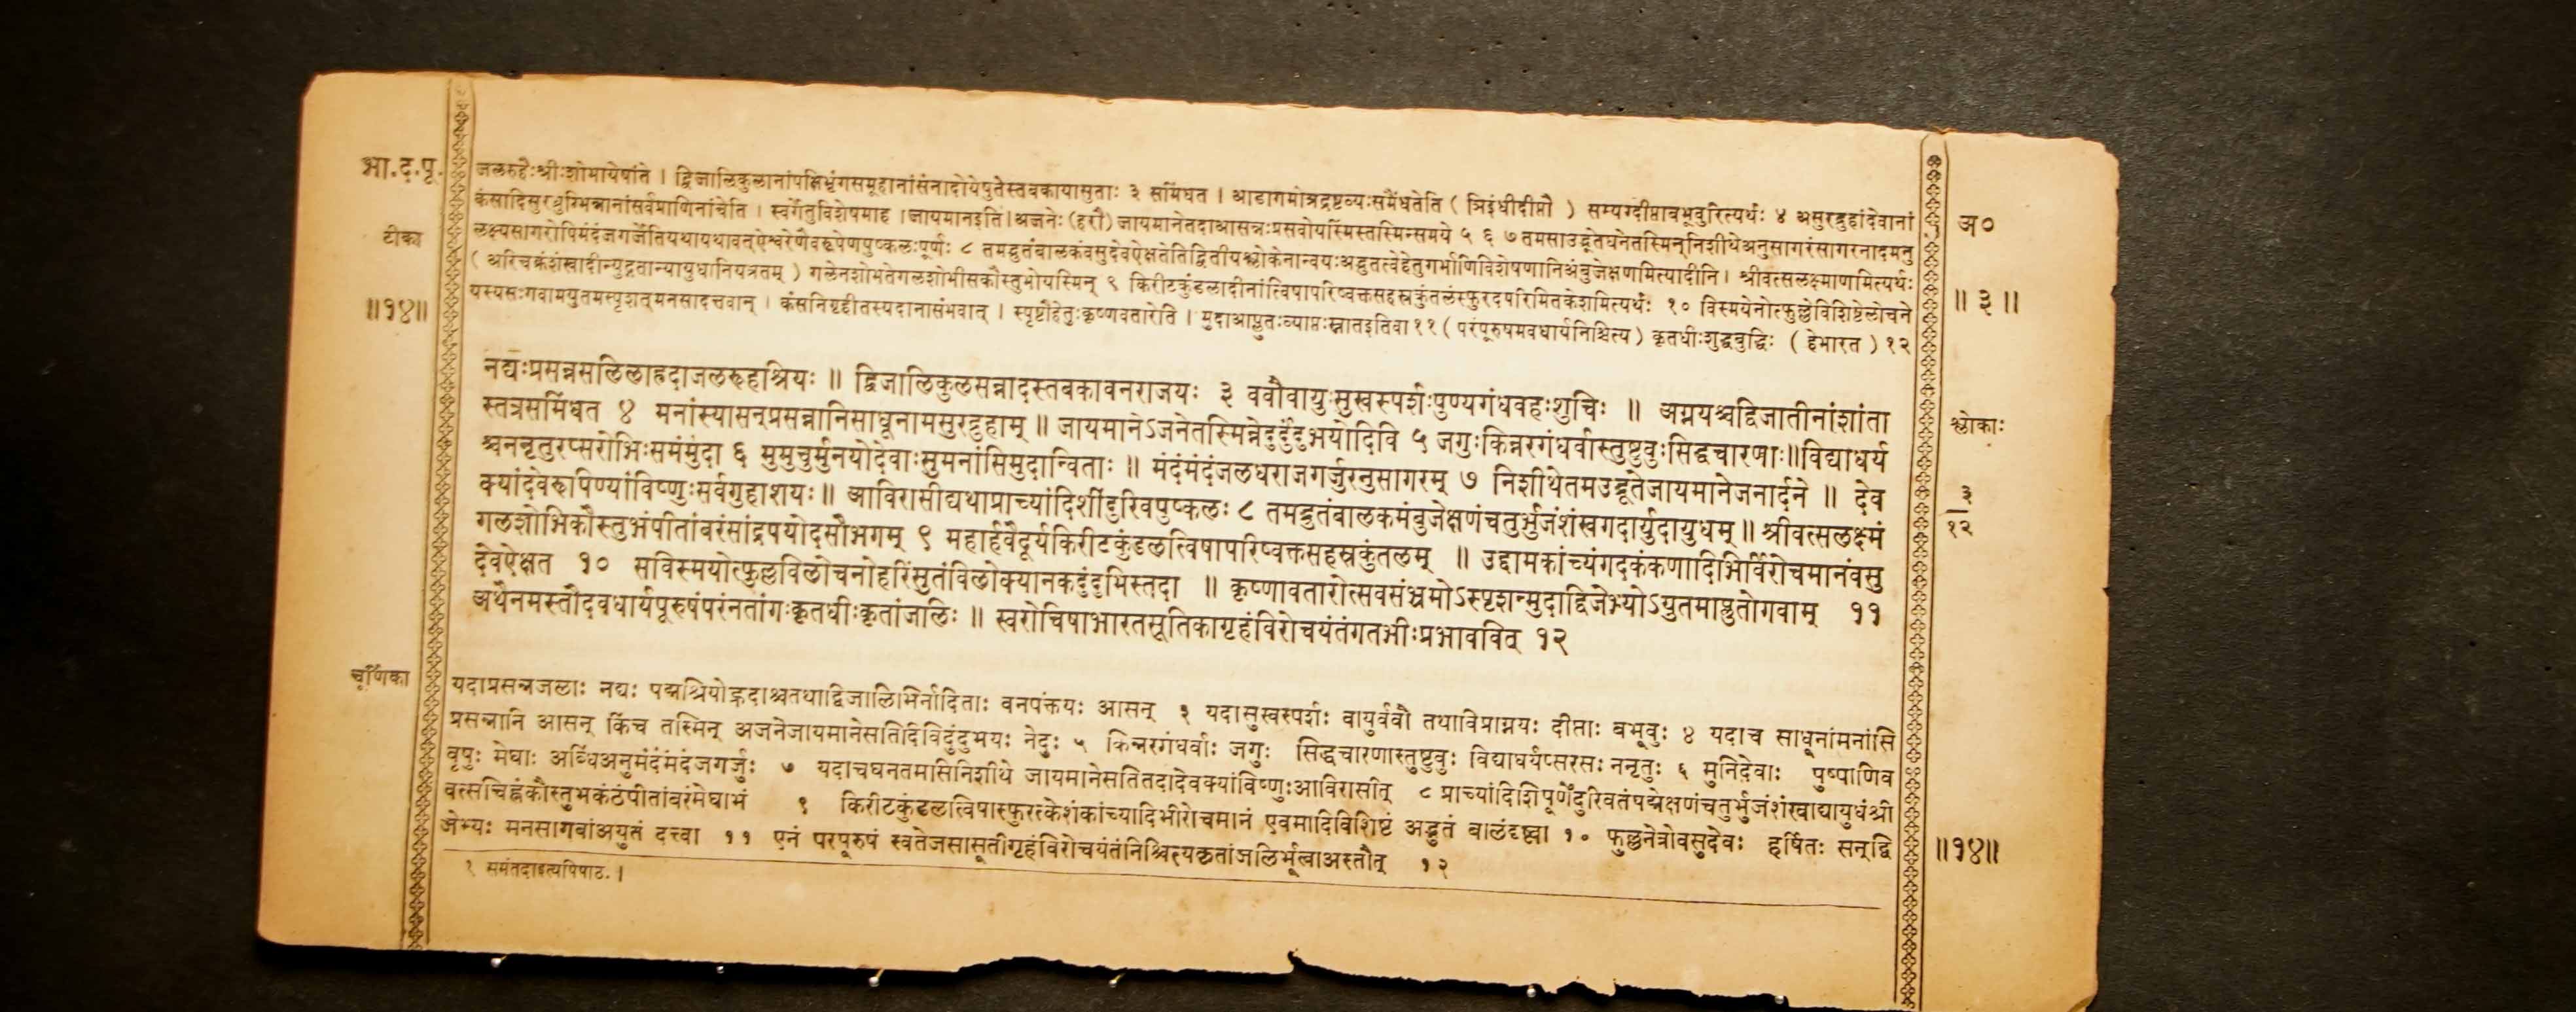 भा.द.पू.
जलरुहैःश्रीःशोभायेषांते । द्विजालिकुलानांपक्षिभृंगसमूहानांसंनादोयेषुतेस्तबकायासुताः ३ समिंधत । आडागमोत्रद्रष्टव्यःसमैंधतेति ( ञिइंधीदीप्तौ ) सम्यग्दीप्ताबभूवुरित्यर्थः ४ असुरद्रुहांदेवानां
अ०
कंसादिसुरध्रुग्भिन्नानांसर्वप्राणिनांचेति । स्वर्गेतुविशेषमाह ।जायमानइति।अजनेः(हरौ)जायमानेतदाआसन्नःप्रसवोयस्मिंस्तस्मिन्समये ५ ६ ७ तमसाउद्भूतेघनेतस्मिन्निशीथेअनुसागरंसागरनादमनु
टीका
लक्ष्यसागरोपिमंदंजगर्जेतियथायथावत्ऐश्वरेणैवरूपेणपुष्कलःपूर्णः ८ तमद्भुतंबालकंवसुदेवऐक्षतेतिद्वितीयश्लोकेनान्वयःअद्भुतत्वेहेतुगर्भाणिविशेषणानिअंबुजेक्षणमित्यादीनि। श्रीवत्सलक्ष्माणमित्यर्थः
( अरिचक्रंशंखादीन्युद्गतान्यायुधानियत्रतम् ) गलेनशोभतेगलशोभीसकौस्तुभोयस्मिन् ९ किरीटकुंडलादीनांत्विषापरिष्वक्तसहस्रकुंतलंस्फुरदपरिमितकेशमित्यर्थः १० विस्मयेनोत्फुल्लेविशिष्टेलोचने
॥ ३ ॥
॥१४॥
यस्यसःगवामयुतमस्पृशत्मनसादत्तवान् । कंसनिगृहीतस्यदानासंभवात् । स्पृष्टौहेतुःकृष्णवतारेति । मुदाआप्लुतःव्याप्तःस्नातइतिवा ११ ( परंपूरुषमवधार्यनिश्चित्य) कृतधीःशुद्धबुद्धिः ( हेभारत ) १२
नद्यःप्रसन्नसलिलाह्रदाजलरुहश्रियः ॥ द्विजालिकुलसन्नादस्तबकावनराजयः ३ ववौवायुःसुखस्पर्शःपुण्यगंधवहःशुचिः ॥ अग्नयश्चद्विजातीनांशांता
श्लोकाः
स्तत्रसमिंधत ४ मनांस्यासन्प्रसन्नानिसाधूनामसुरद्रुहाम् ॥ जायमानेऽजनेतस्मिन्नेदुर्दुंदुभयोदिवि ५ जगुःकिन्नरगंधर्वास्तुष्टुवुःसिद्धचारणाः॥विद्याधर्य
श्चननृतुरप्सरोभिःसमंमुदा ६ मुमुचुर्मुनयोदेवाःसुमनांसिमुदान्विताः ॥ मंदंमंदंजलधराजगर्जुरनुसागरम् ७ निशीथेतमउद्भूतेजायमानेजनार्दने ॥ देव
३
१२
क्यांदेवरूपिण्यांविष्णुःसर्वगुहाशयः॥ आविरासीद्यथाप्राच्यांदिशींदुरिवपुष्कलः ८ तमद्भुतंबालकमंबुजेक्षणंचतुर्भुजंशंखगदार्युदायुधम्॥ श्रीवत्सलक्ष्मं
गलशोभिकौस्तुभंपीतांबरंसांद्रपयोदसौभगम् ९ महार्हवैदूर्यकिरीटकुंडलत्विषापरिष्वक्तसहस्रकुंतलम् ॥ उद्दामकांच्यंगदकंकणादिभिर्विरोचमानंवसु
देवऐक्षत १० सविस्मयोत्फुल्लविलोचनोहरिंसुतंविलोक्यानकदुंदुभिस्तदा ॥ कृष्णावतारोत्सवसंभ्रमोऽस्पृशन्मुदाद्विजेभ्योऽयुतमाप्लुतोगवाम् ११
अथैनमस्तौदवधार्यपूरुषंपरंनतांगःकृतधीःकृतांजलिः ॥ स्वरोचिषाभारतसूतिकागृहंविरोचयंतंगतभीःप्रभाववित् १२
चूर्णिका
यदाप्रसन्नजलाः नद्यः पद्मश्रियोह्रदाश्चतथाद्विजालिभिर्नादिताः वनपंक्तयः आसन् ३ यदासुखस्पर्शः वायुर्ववौ तथाविप्राग्नयः दीप्ताः बभूवुः ४ यदाच साधूनांमनांसि
प्रसन्नानि आसन् किंच तस्मिन् अजनेजायमानेसतिदिविदुंदुभयः नेदुः ५ किन्नरगंधर्वाः जगुः सिद्धचारणास्तुष्टुवुः विद्याधर्यप्सरसः ननृतुः ६ मुनिदेवाः पुष्पाणिव
वृषुः मेघाः अब्धिंअनुमंदंमंदंजगर्जुः ७ यदाचघनतमासिनिशीथे जायमानेसतितदादेवक्यांविष्णुःआविरासीत् ८ प्राच्यांदिशिपूर्णेंदुरिवतंपद्मेक्षणंचतुर्भुजंशंखाद्यायुधंश्री
वत्सचिह्नंकौस्तुभकंठंपीतांबरंमेघाभं ९ किरीटकुंडलत्विषास्फुरत्केशंकांच्यादिभीरोचमानं एवमादिविशिष्टं अद्भुतं बालंदृष्ट्वा १० फुल्लनेत्रोवसुदेवः हर्षितः सन्द्वि
जेभ्यः मनसागवांअयुतं दत्त्वा ११ एनं परपूरुषं स्वतेजसासूतीगृहंविरोचयंतंनिश्चित्यकृतांजलिर्भूत्वाअस्तौत् १२
॥१४॥
१ समंतदाइत्यपिपाठः।